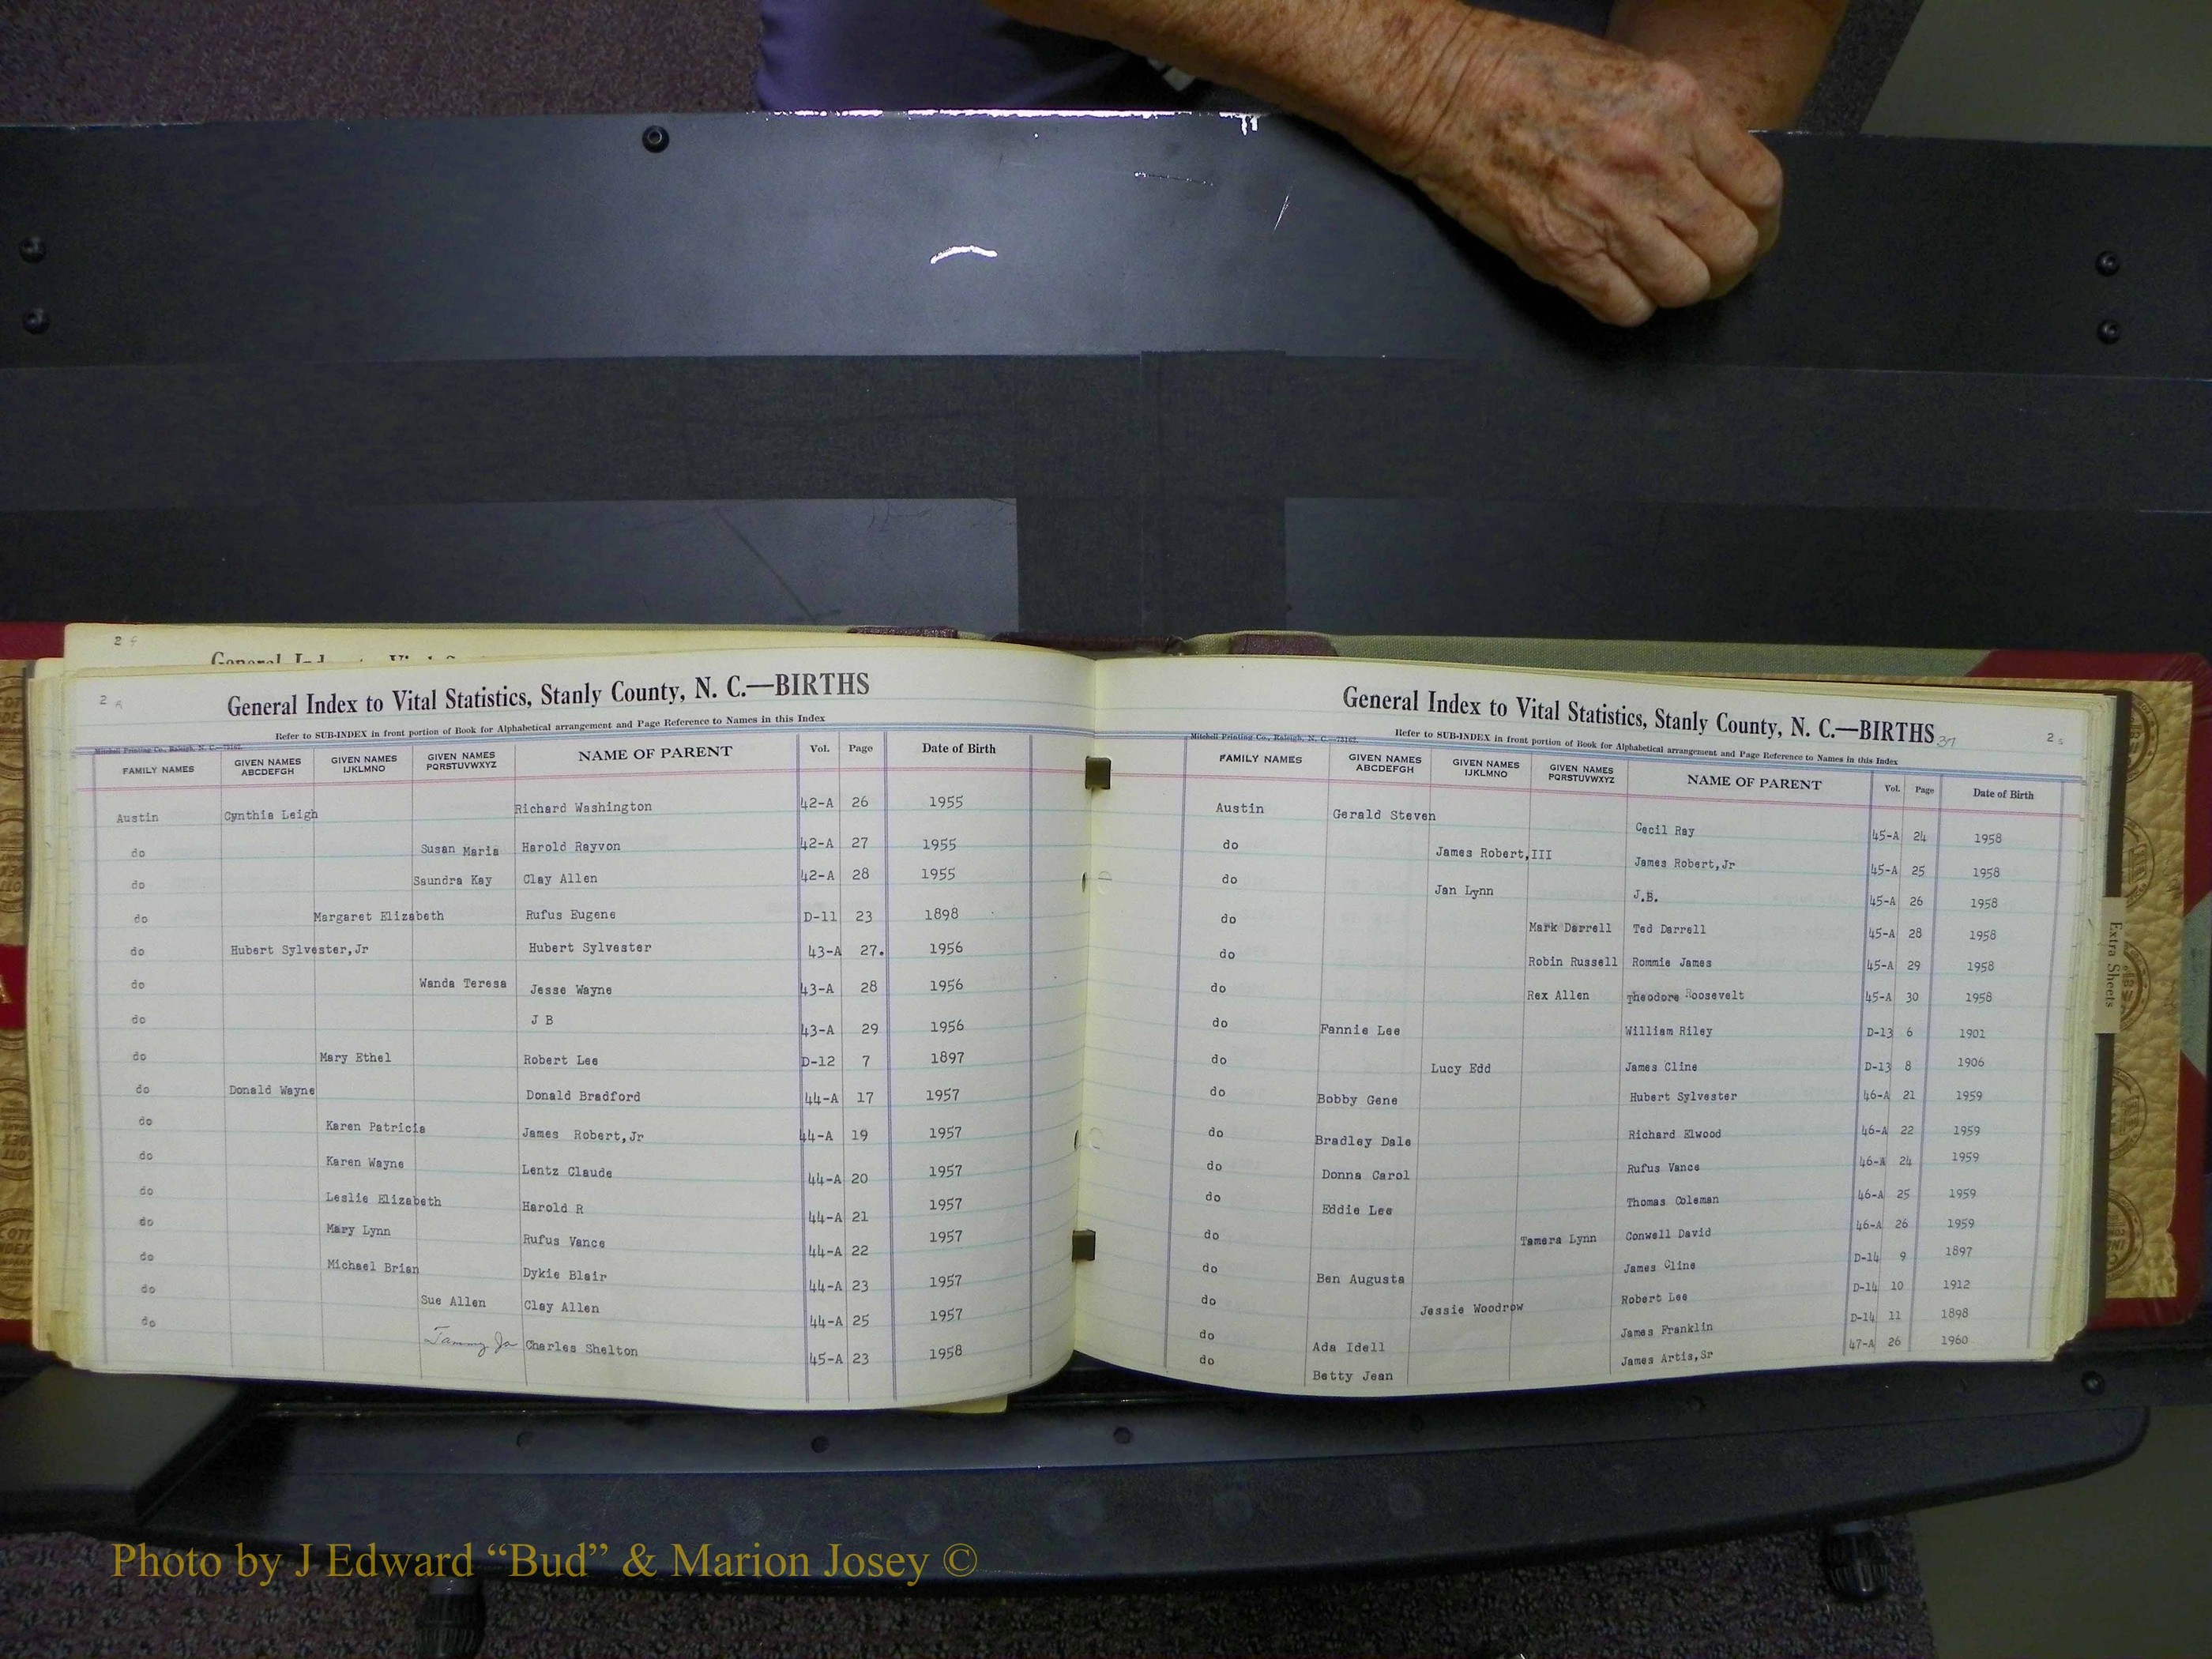 2
General Index to Vital Statistics, Stanly County, N. C.—BIRTHS
Refer to SUB-INDEX in front portion of Book for Alphabetical arrangement and Page Reference to Names in this Index
Mitchell Printing Co., Raleigh, N. C.
FAMILY NAMES GIVEN NAMES ABCDEFGH GIVEN NAMES IJKLMNO GIVEN NAMES PQRSTUVWXYZ NAME OF PARENT Vol. Page Date of Birth
Austin Cynthia Leigh Richard Washington 42-A 26 1955
do Susan Maria Harold Rayvon 42-A 27 1955
do Saundra Kay Clay Allen 42-A 28 1955
do Margaret Elizabeth Rufus Eugene D-11 23 1898
do Hubert Sylvester,Jr Hubert Sylvester 43-A 27. 1956
do Wanda Teresa Jesse Wayne 43-A 28 1956
do J B 43-A 29 1956
do Mary Ethel Robert Lee D-12 7 1897
do Donald Wayne Donald Bradford 44-A 17 1957
do Karen Patricia James Robert,Jr 44-A 19 1957
do Karen Wayne Lentz Claude 44-A 20 1957
do Leslie Elizabeth Harold R 44-A 21 1957
do Mary Lynn Rufus Vance 44-A 22 1957
do Michael Brian Dykie Blair 44-A 23 1957
do Sue Allen Clay Allen 44-A 25 1957
do Tammy Jo Charles Shelton 45-A 23 1958
General Index to Vital Statistics, Stanly County, N. C.—BIRTHS 37
2
Refer to SUB-INDEX in front portion of Book for Alphabetical arrangement and Page Reference to Names in this Index
Mitchell Printing Co., Raleigh, N. C.
FAMILY NAMES GIVEN NAMES ABCDEFGH GIVEN NAMES IJKLMNO GIVEN NAMES PQRSTUVWXYZ NAME OF PARENT Vol. Page Date of Birth
Austin Gerald Steven Cecil Ray 45-A 24 1958
do James Robert,III James Robert,Jr 45-A 25 1958
do Jan Lynn J.B. 45-A 26 1958
do Mark Darrell Ted Darrell 45-A 28 1958
do Robin Russell Rommie James 45-A 29 1958
do Rex Allen Theodore Roosevelt 45-A 30 1958
do Fannie Lee William Riley D-13 6 1901
do Lucy Edd James Cline D-13 8 1906
do Bobby Gene Hubert Sylvester 46-A 21 1959
do Bradley Dale Richard Elwood 46-A 22 1959
do Donna Carol Rufus Vance 46-A 24 1959
do Eddie Lee Thomas Coleman 46-A 25 1959
do Tamera Lynn Conwell David 46-A 26 1959
do Ben Augusta James Cline D-14 9 1897
do Jessie Woodrow Robert Lee D-14 10 1912
do Ada Idell James Franklin D-14 11 1898
do Betty Jean James Artis,Sr 47-A 26 1960
Extra Sheets
Photo by J Edward “Bud” & Marion Josey ©